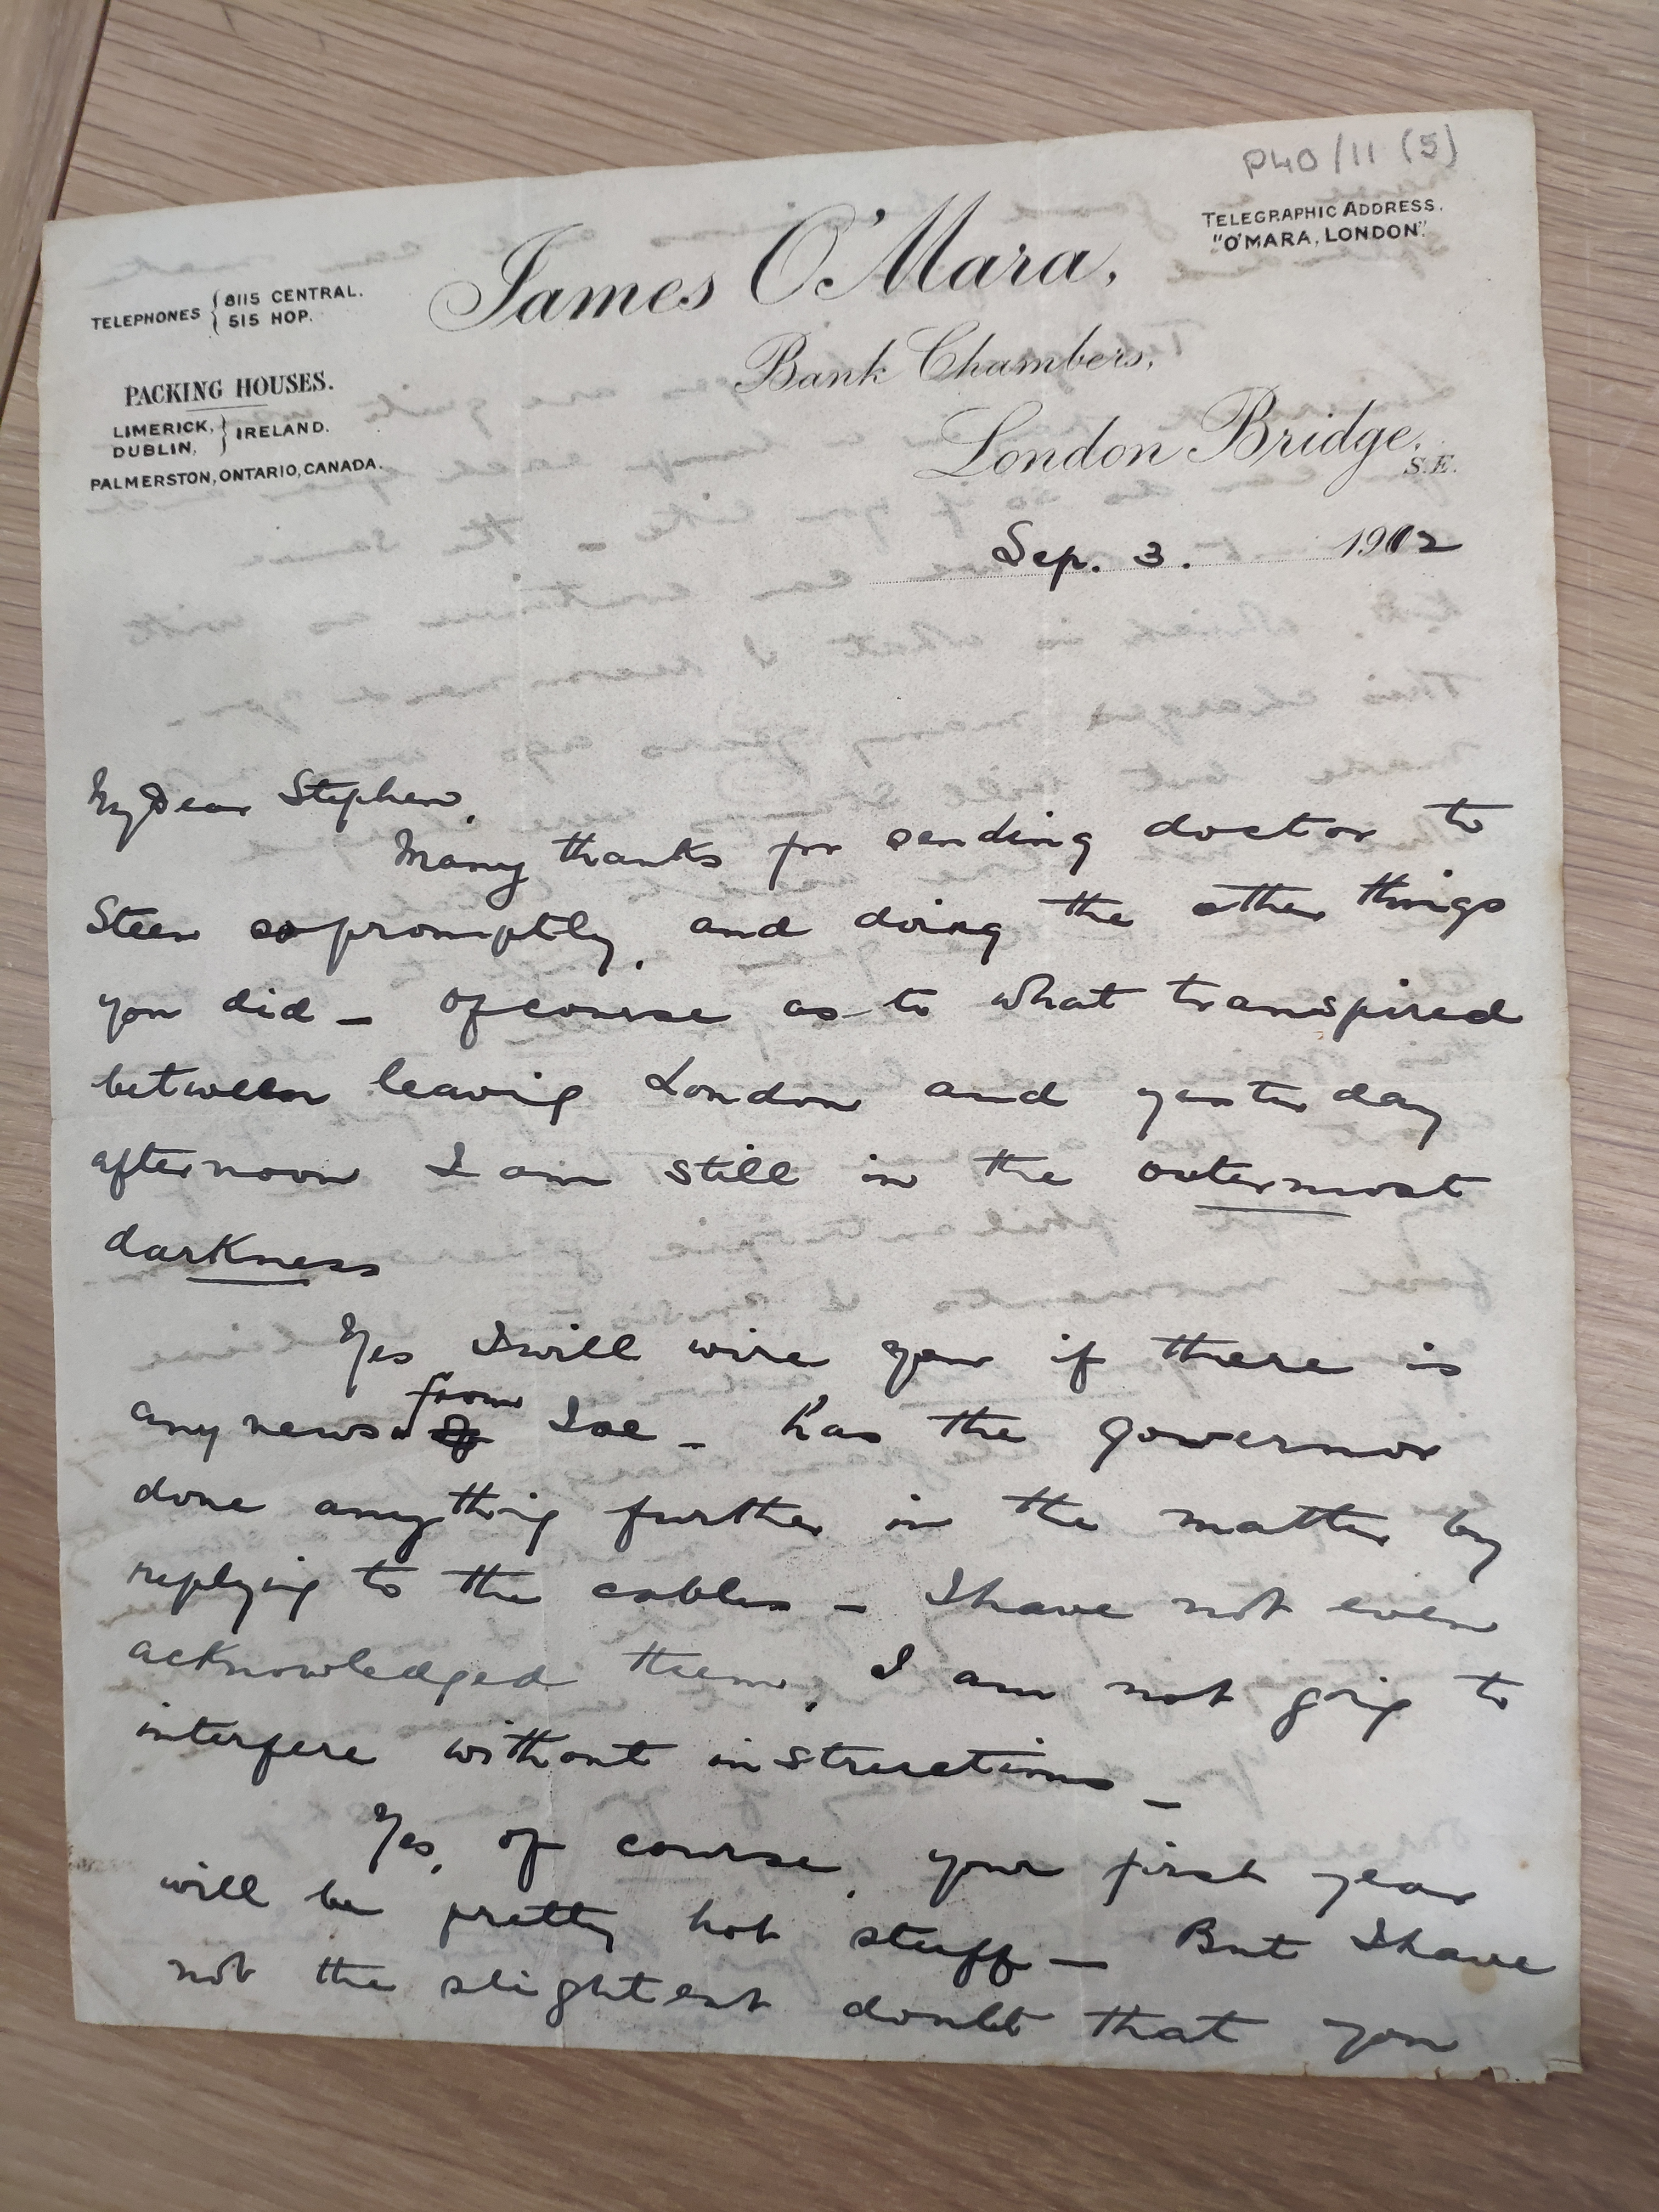 P40/11 (5)
TELEGRAPHIC ADDRESS.
"O'MARA, LONDON".
James O'Mara,
TELEPHONES { 8115 CENTRAL.
515 HOP.
Bank Chambers,
PACKING HOUSES.
LIMERICK, } IRELAND.
DUBLIN,
PALMERSTON, ONTARIO, CANADA.
London Bridge,
S.E.
Sep. 3. 1912
My Dear Stephen,
Many thanks for sending doctor to
Steen so promptly, and doing the other things
you did – Of course as to what transpired
between leaving London and yesterday
afternoon I am still in the outermost
darkness
Yes I will wire you if there is
from
any news of Joe – has the governor
done anything further in the matter by
replying to the cables – I have not even
acknowledged them, I am not going to
interfere without instructions –
Yes, of course, your first year
will be pretty hot stuff – But I have
not the slightest doubt that you